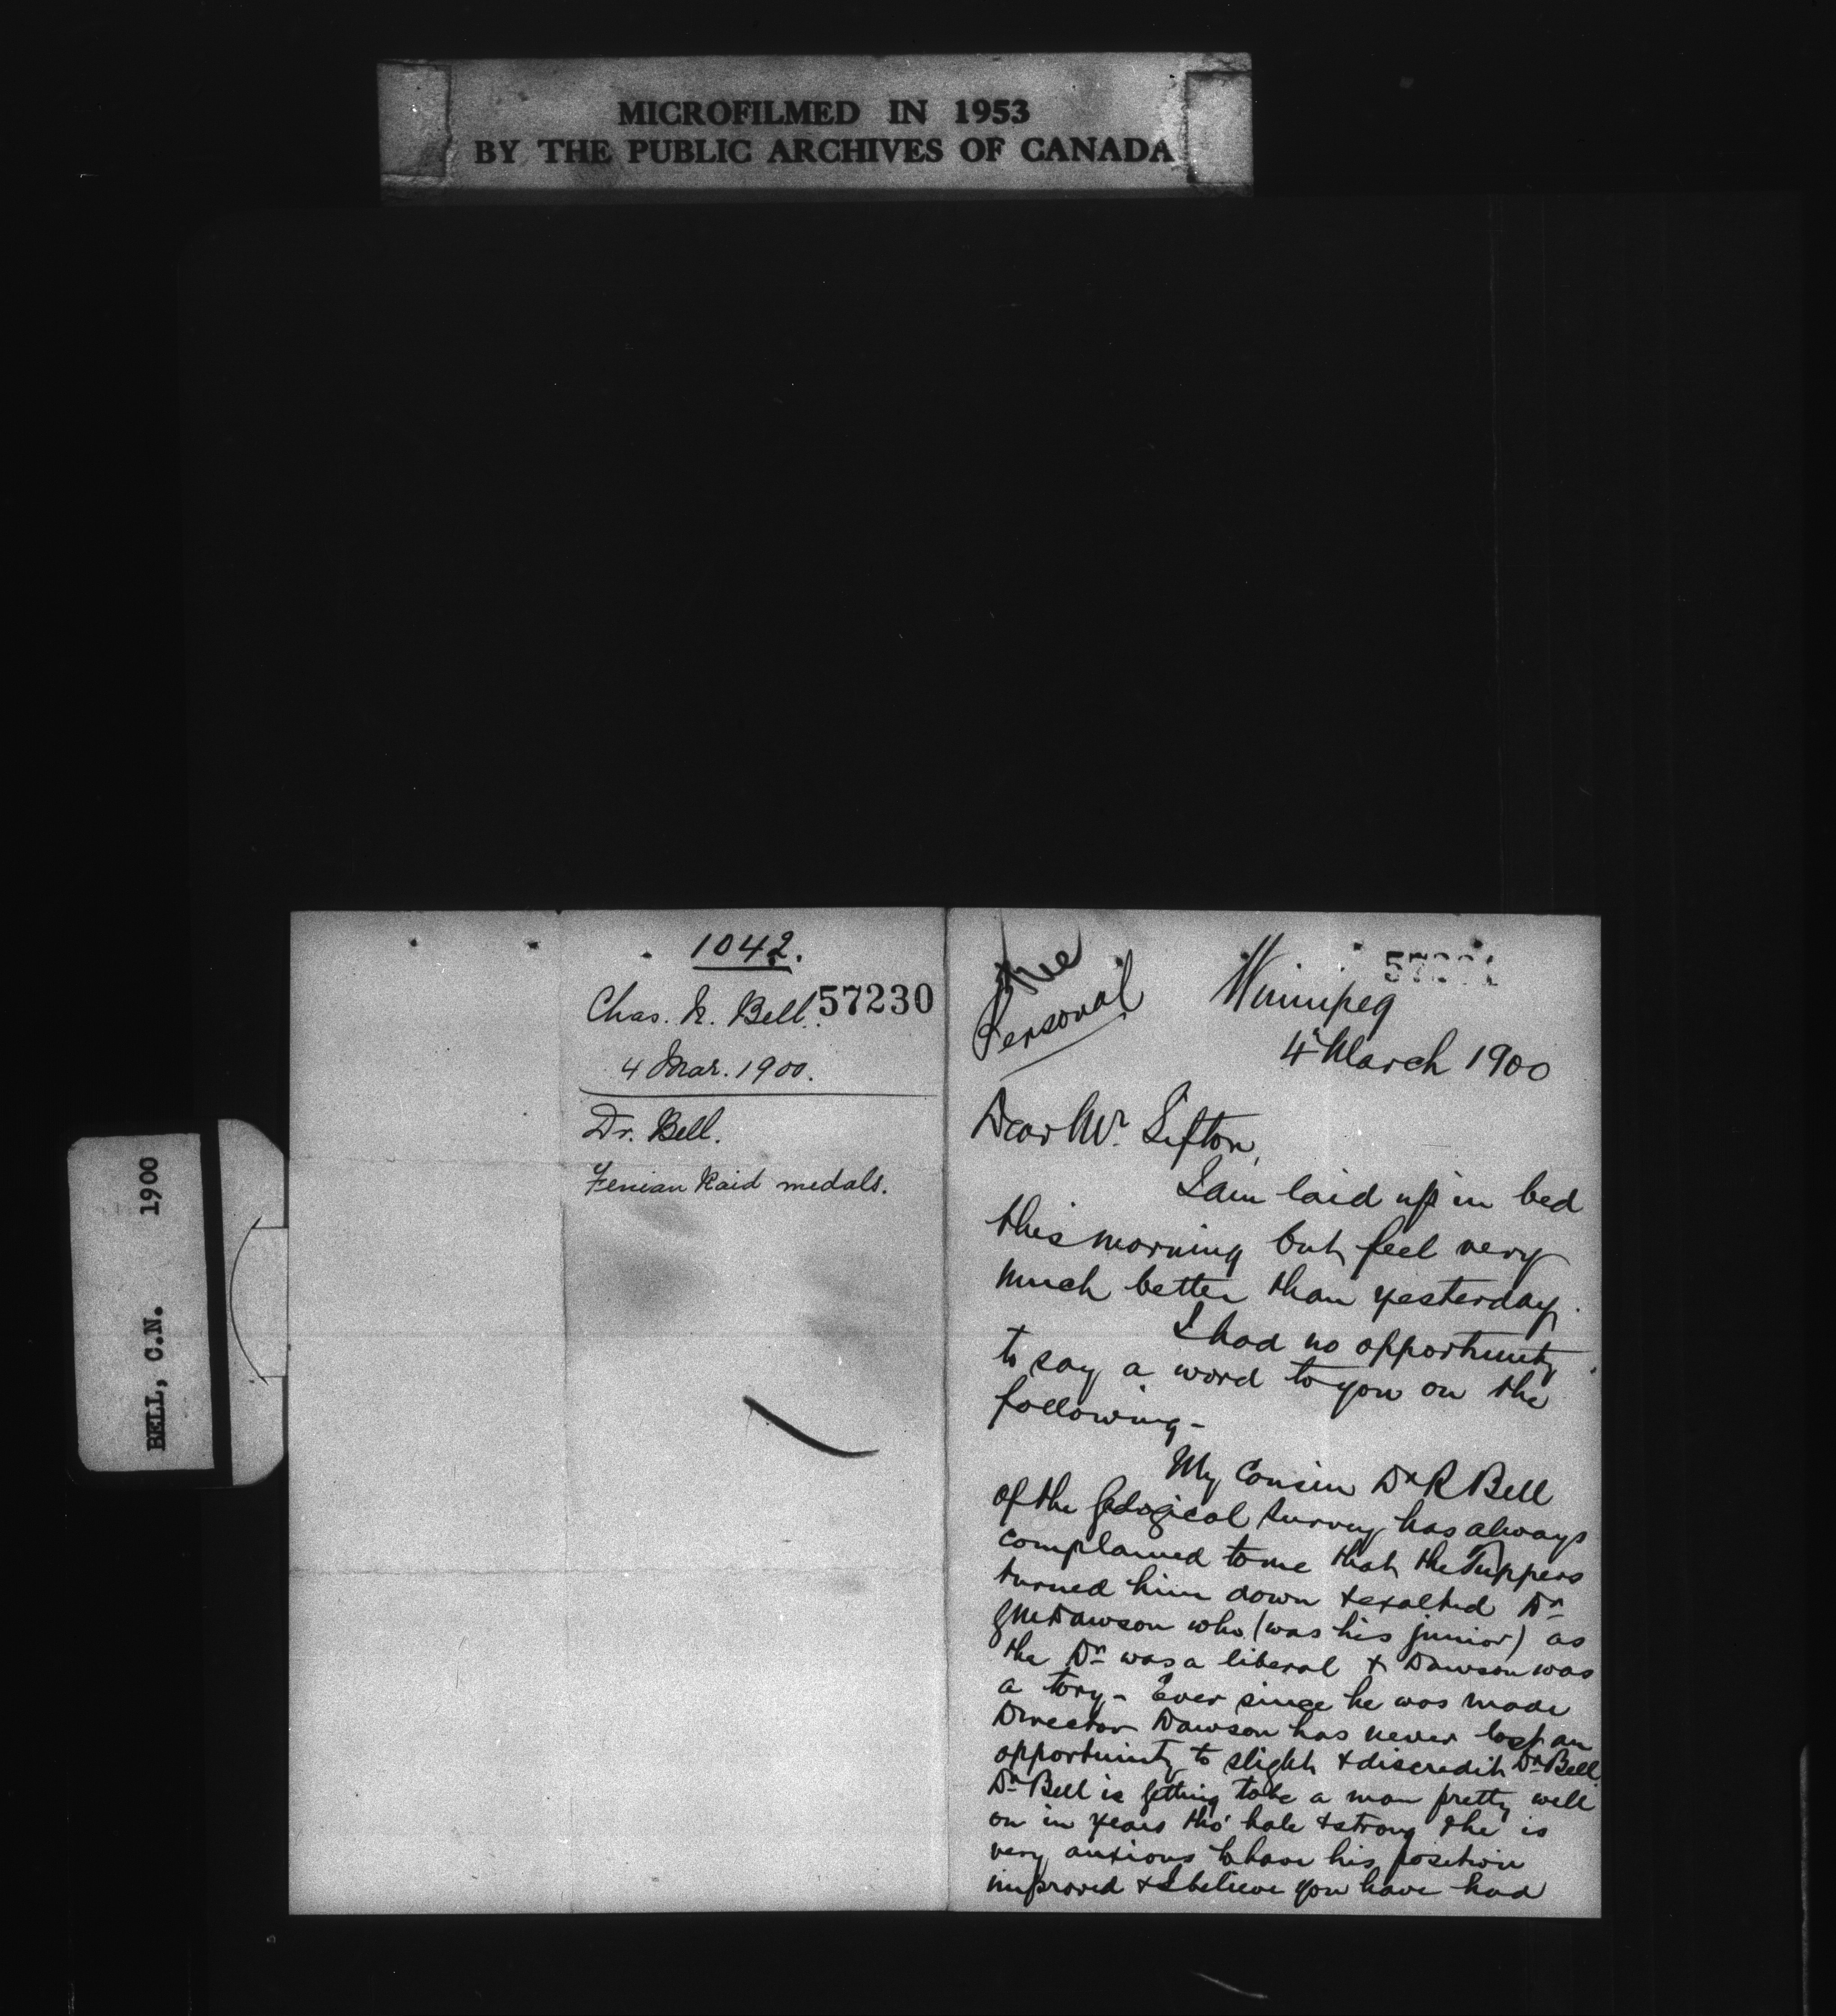 MICROFILMED IN 1953
BY THE PUBLIC ARCHIVES OF CANADA
BELL, C.N. 1900
1042.
Chas. N. Bell. 57230
4 Mar. 1900.
Dr. Bell.
Fenian Raid medals.
Personal
Winnipeg
4th March 1900
Dear Mr. Sifton,
I am laid up in bed
this morning but feel very
much better than yesterday.
I had no opportunity
to say a word to you on the
following -
My Cousin Dr R Bell
of the Geological Survey has always
complained to me that the Tuppers
turned him down & exalted Dr
G M Dawson who (was his junior) as
the Dr was a liberal & Dawson was
a tory - Ever since he was made
Director Dawson has never lost an
opportunity to slight & discredit Dr Bell.
Dr Bell is getting to be a man pretty well
on in years tho' hale & strong & he is
very anxious to have his position
improved & I believe you have had